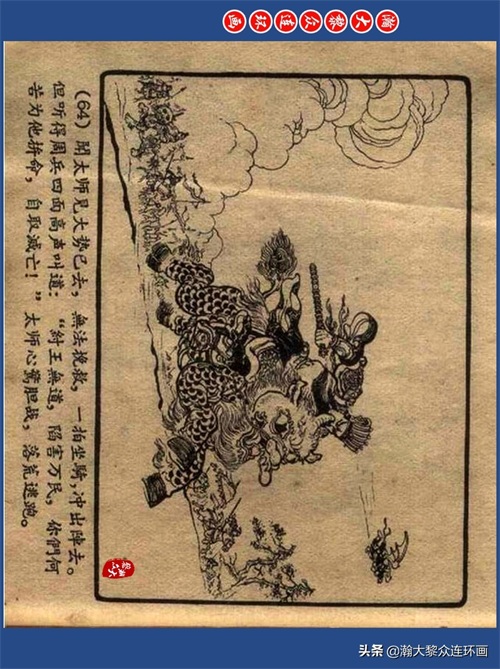 瀚大黎众连环画
(64) 聞太师見大势已去，無法挽救，一拍坐騎，冲出陣去。
但听得周兵四面高声叫道：“紂王無道，陷害万民，你們何
苦为他拼命，自取滅亡！”太师心驚胆战，落荒逃跑。
头条 @瀚大黎众连环画